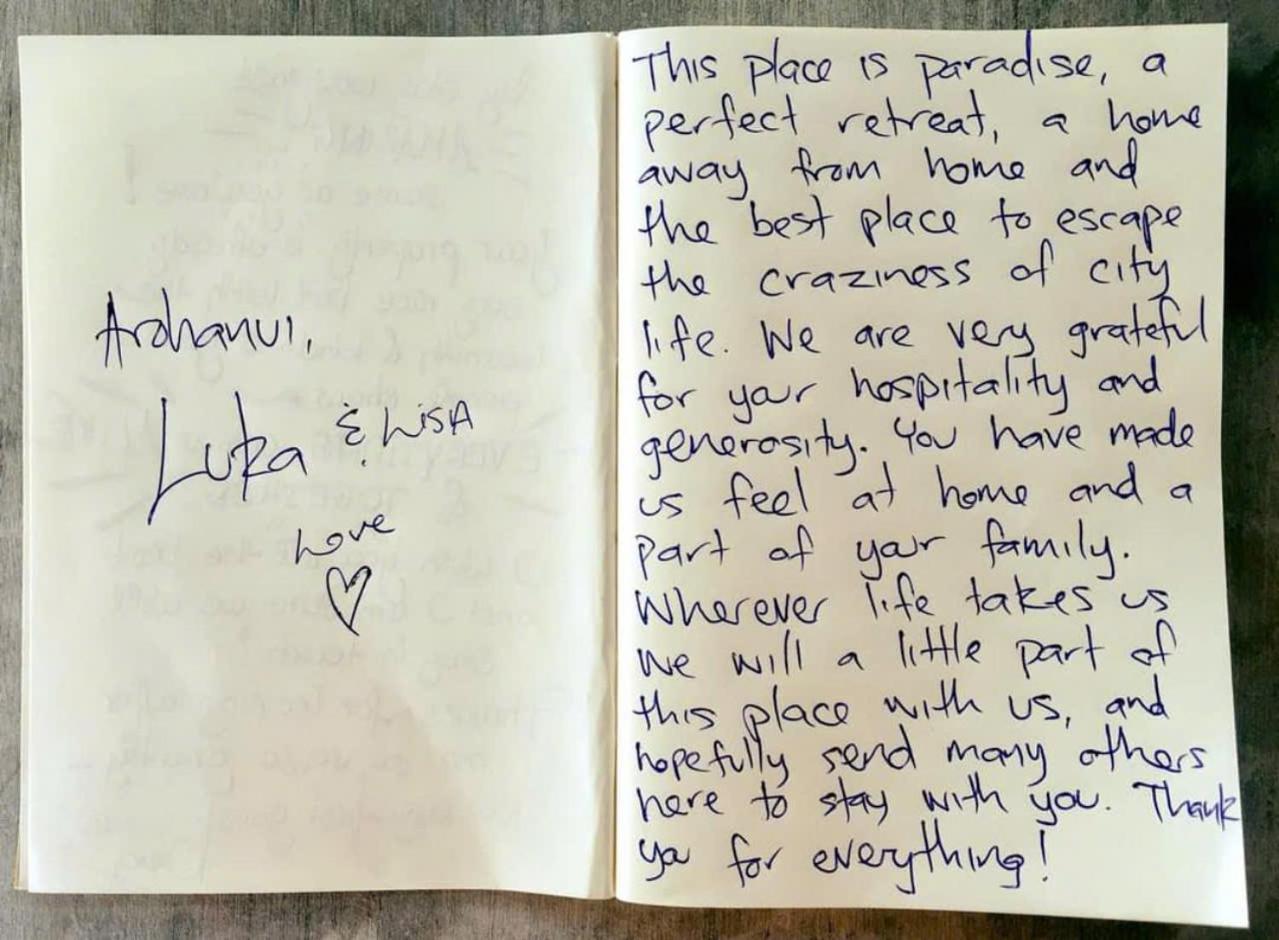 Arohanui,
Luka & LiSA
Love
This place is paradise, a
perfect retreat, a home
away from home and
the best place to escape
the craziness of city
life. We are very grateful
for your hospitality and
generosity. You have made
us feel at home and a
part of your family.
Wherever life takes us
we will a little part of
this place with us, and
hopefully send many others
here to stay with you. Thank
you for everything!